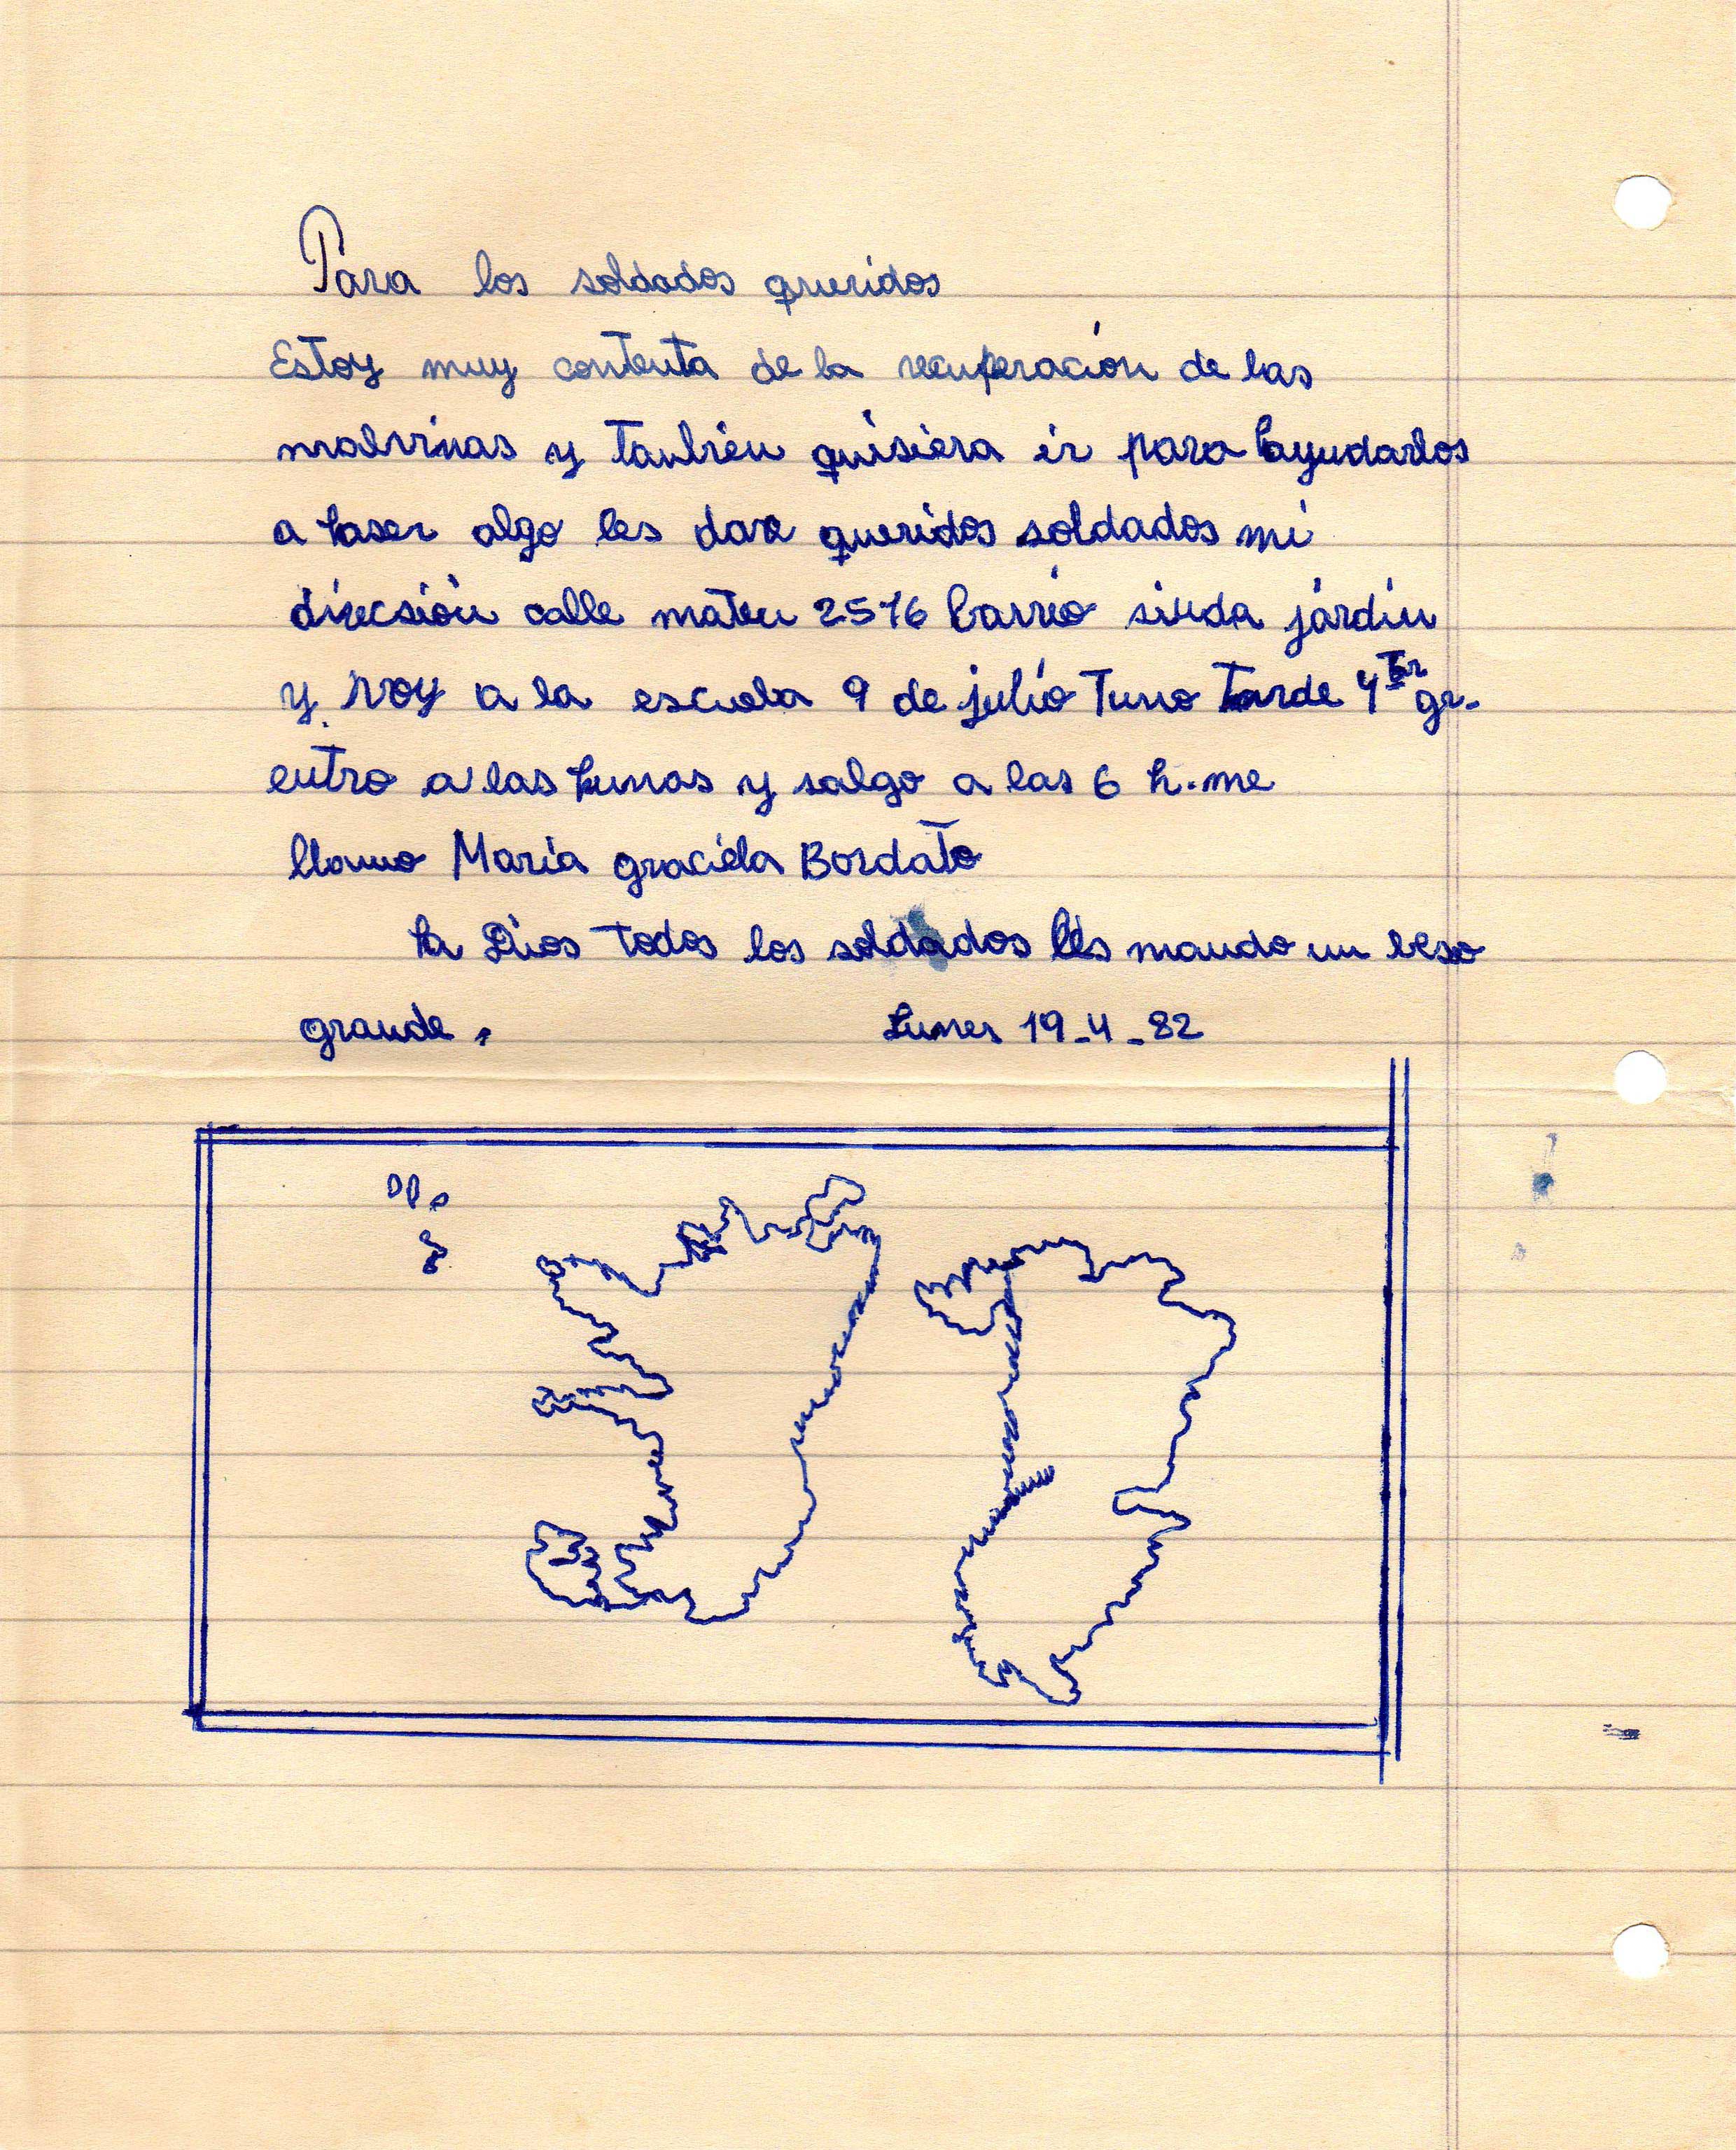 Para los soldados queridos
Estoy muy contenta de la recuperación de las
malvinas y tanbien quisiera ir para ayudarlos
a haser algo les dare queridos soldados mi
direcsión calle mateu 2576 barrio siuda járdin
y voy a la escuela 9 de julio Turno Tarde 4 gr.
entro a las hunas y salgo a las 6 h. me
llamo Maria graciela Bordato
ha Dios Todos los soldados les mando un beso
grande.
Lunes 19-4-82